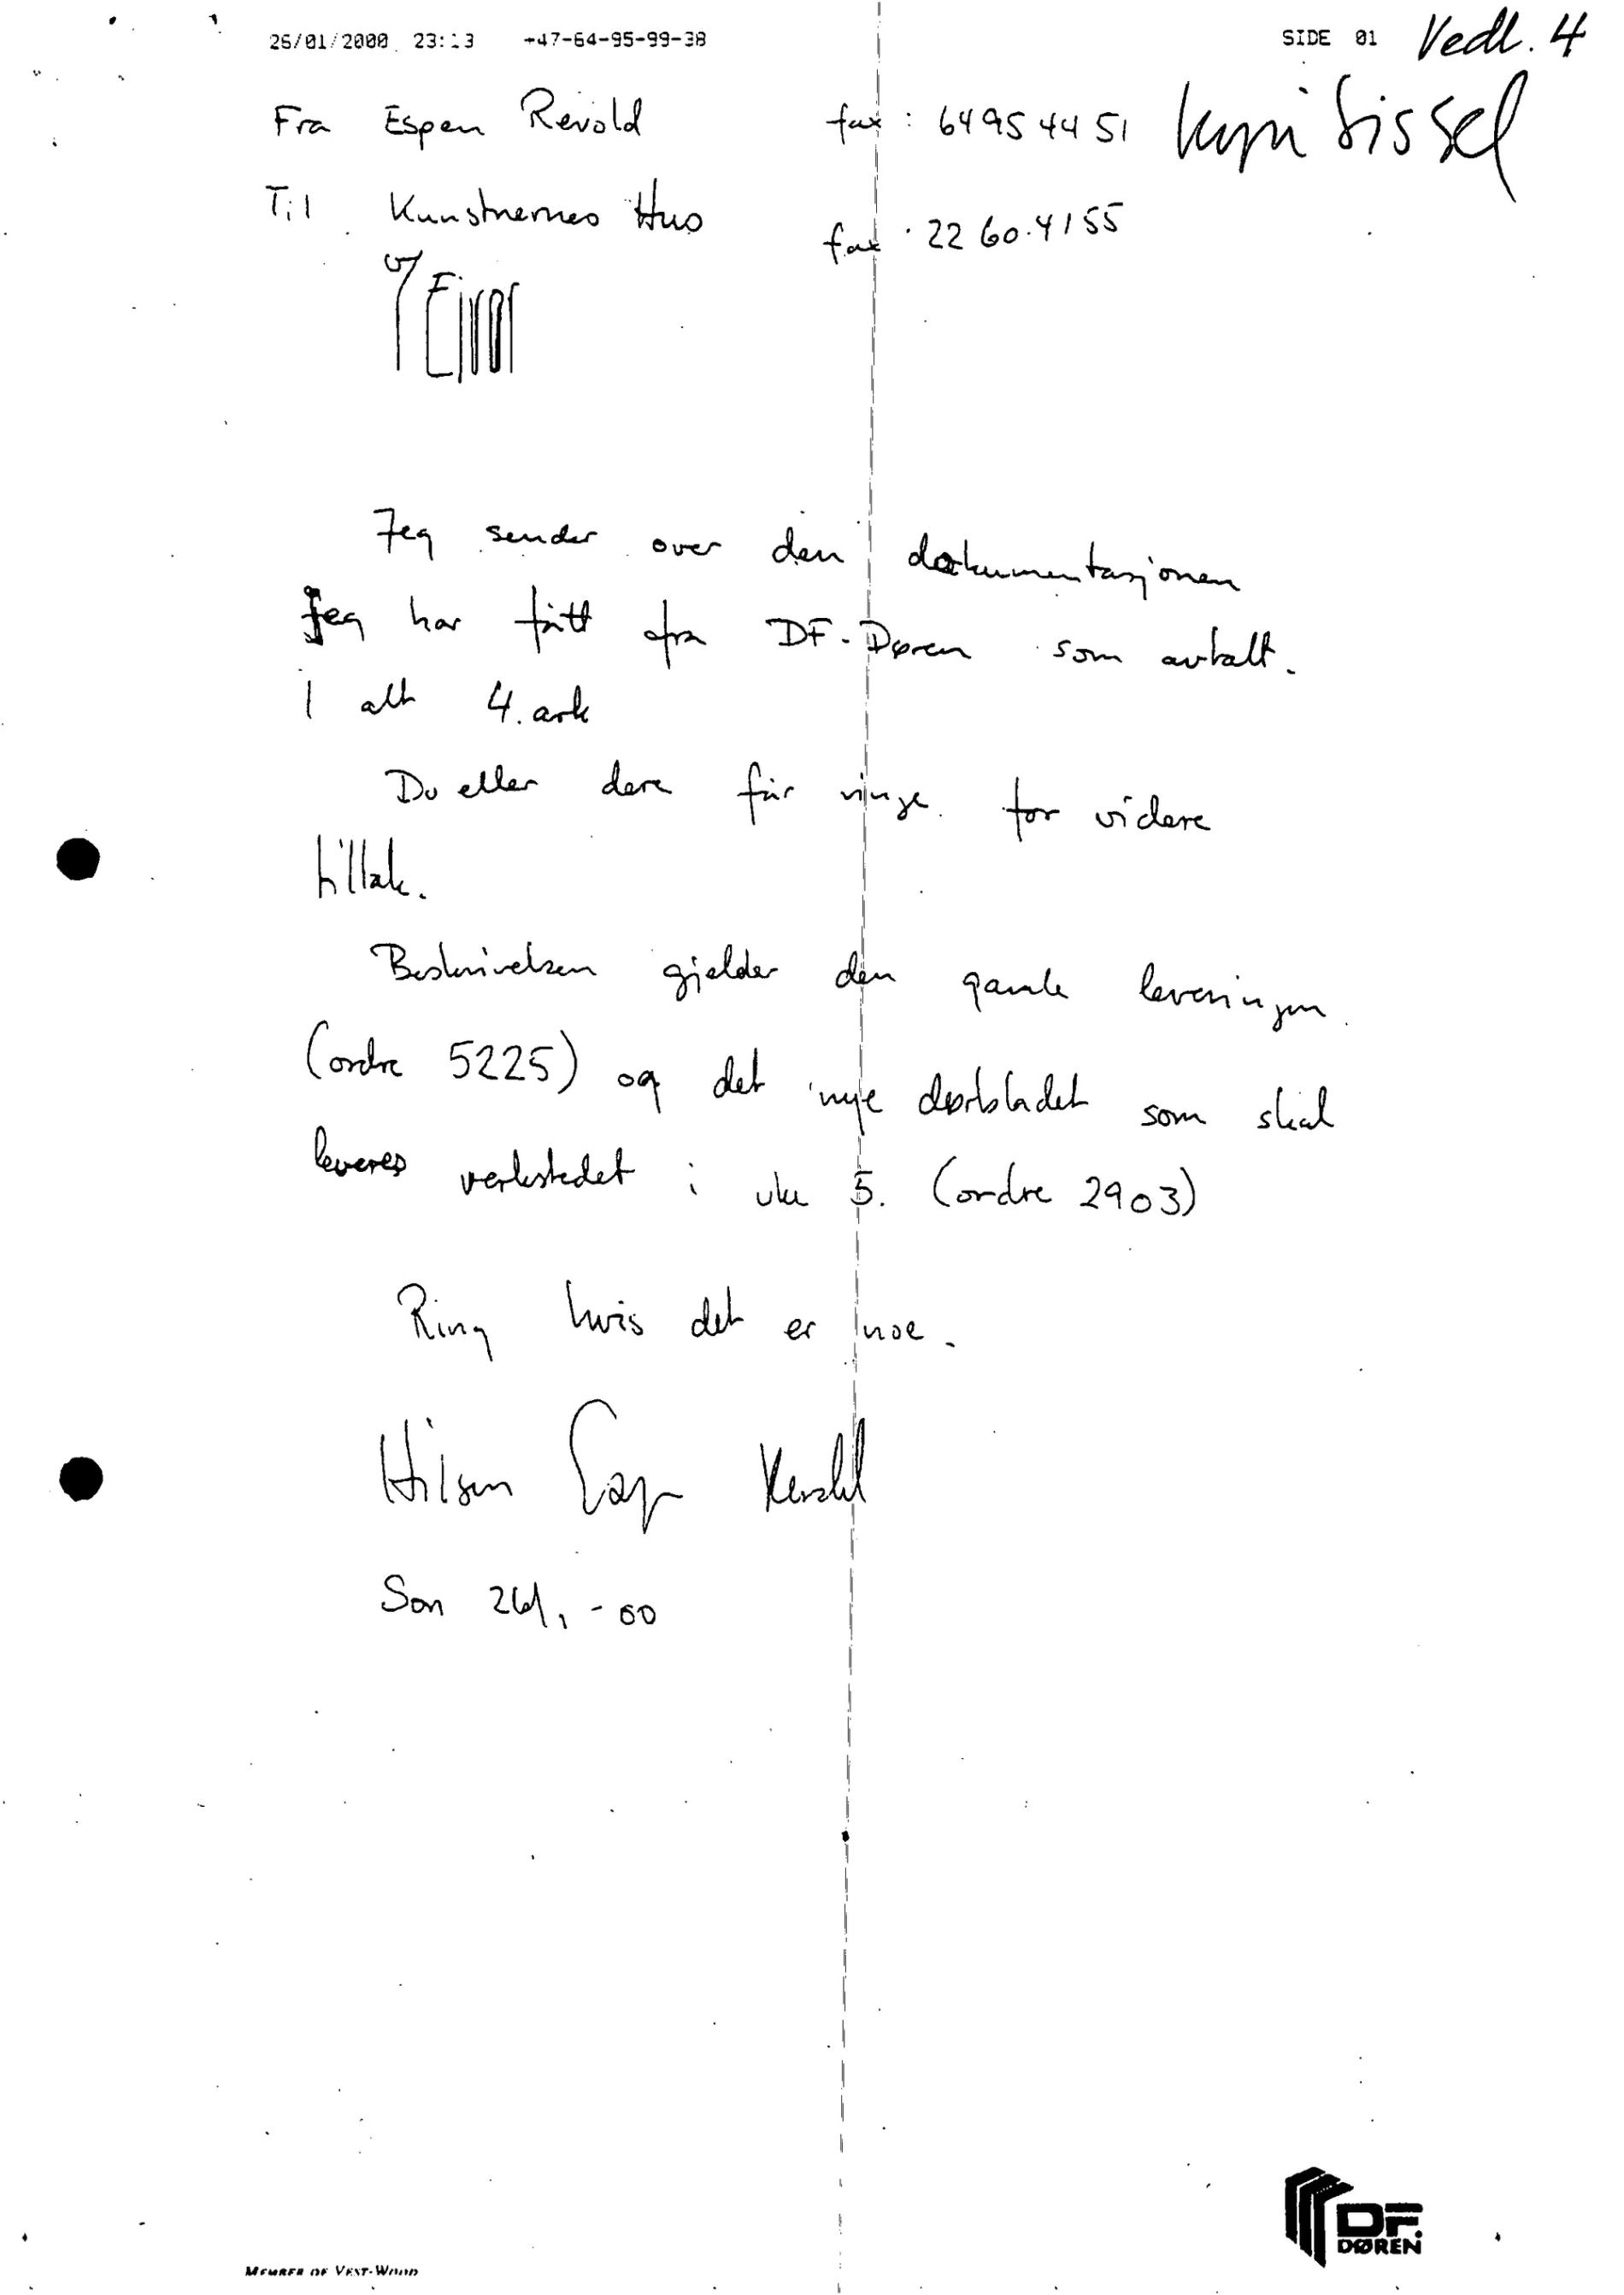 26/01/2000 23:13 +47-64-95-99-38 SIDE 01 Vedl. 4
Fra Espen Revold fax : 64 95 44 51 kopi Sissel
Til Kunstnernes Hus fax : 22 60.41 55
v/ Eivor
Jeg sender over den dokumentasjonen
jeg har fått fra DF-Døren som avtalt.
I alt 4. ark
Du eller dere får ringe for videre
tiltak.
Beskrivelsen gjelder den gamle leveringen
(ordre 5225) og det nye dørbladet som skal
leveres verkstedet i uke 5. (ordre 2903)
Ring hvis det er noe.
Hilsen Espen Revold
Son 26/1-00
DF.
DØREN
MEMBER OF VEST-WOOD